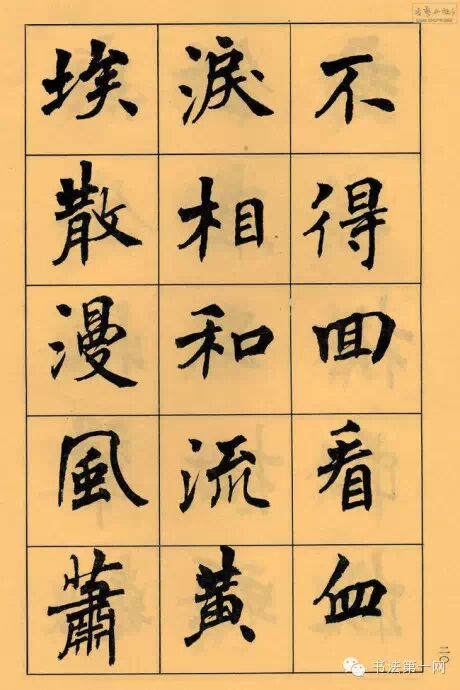 不得回看血
淚相和流黃
埃散漫風蕭
二〇
书法第一网